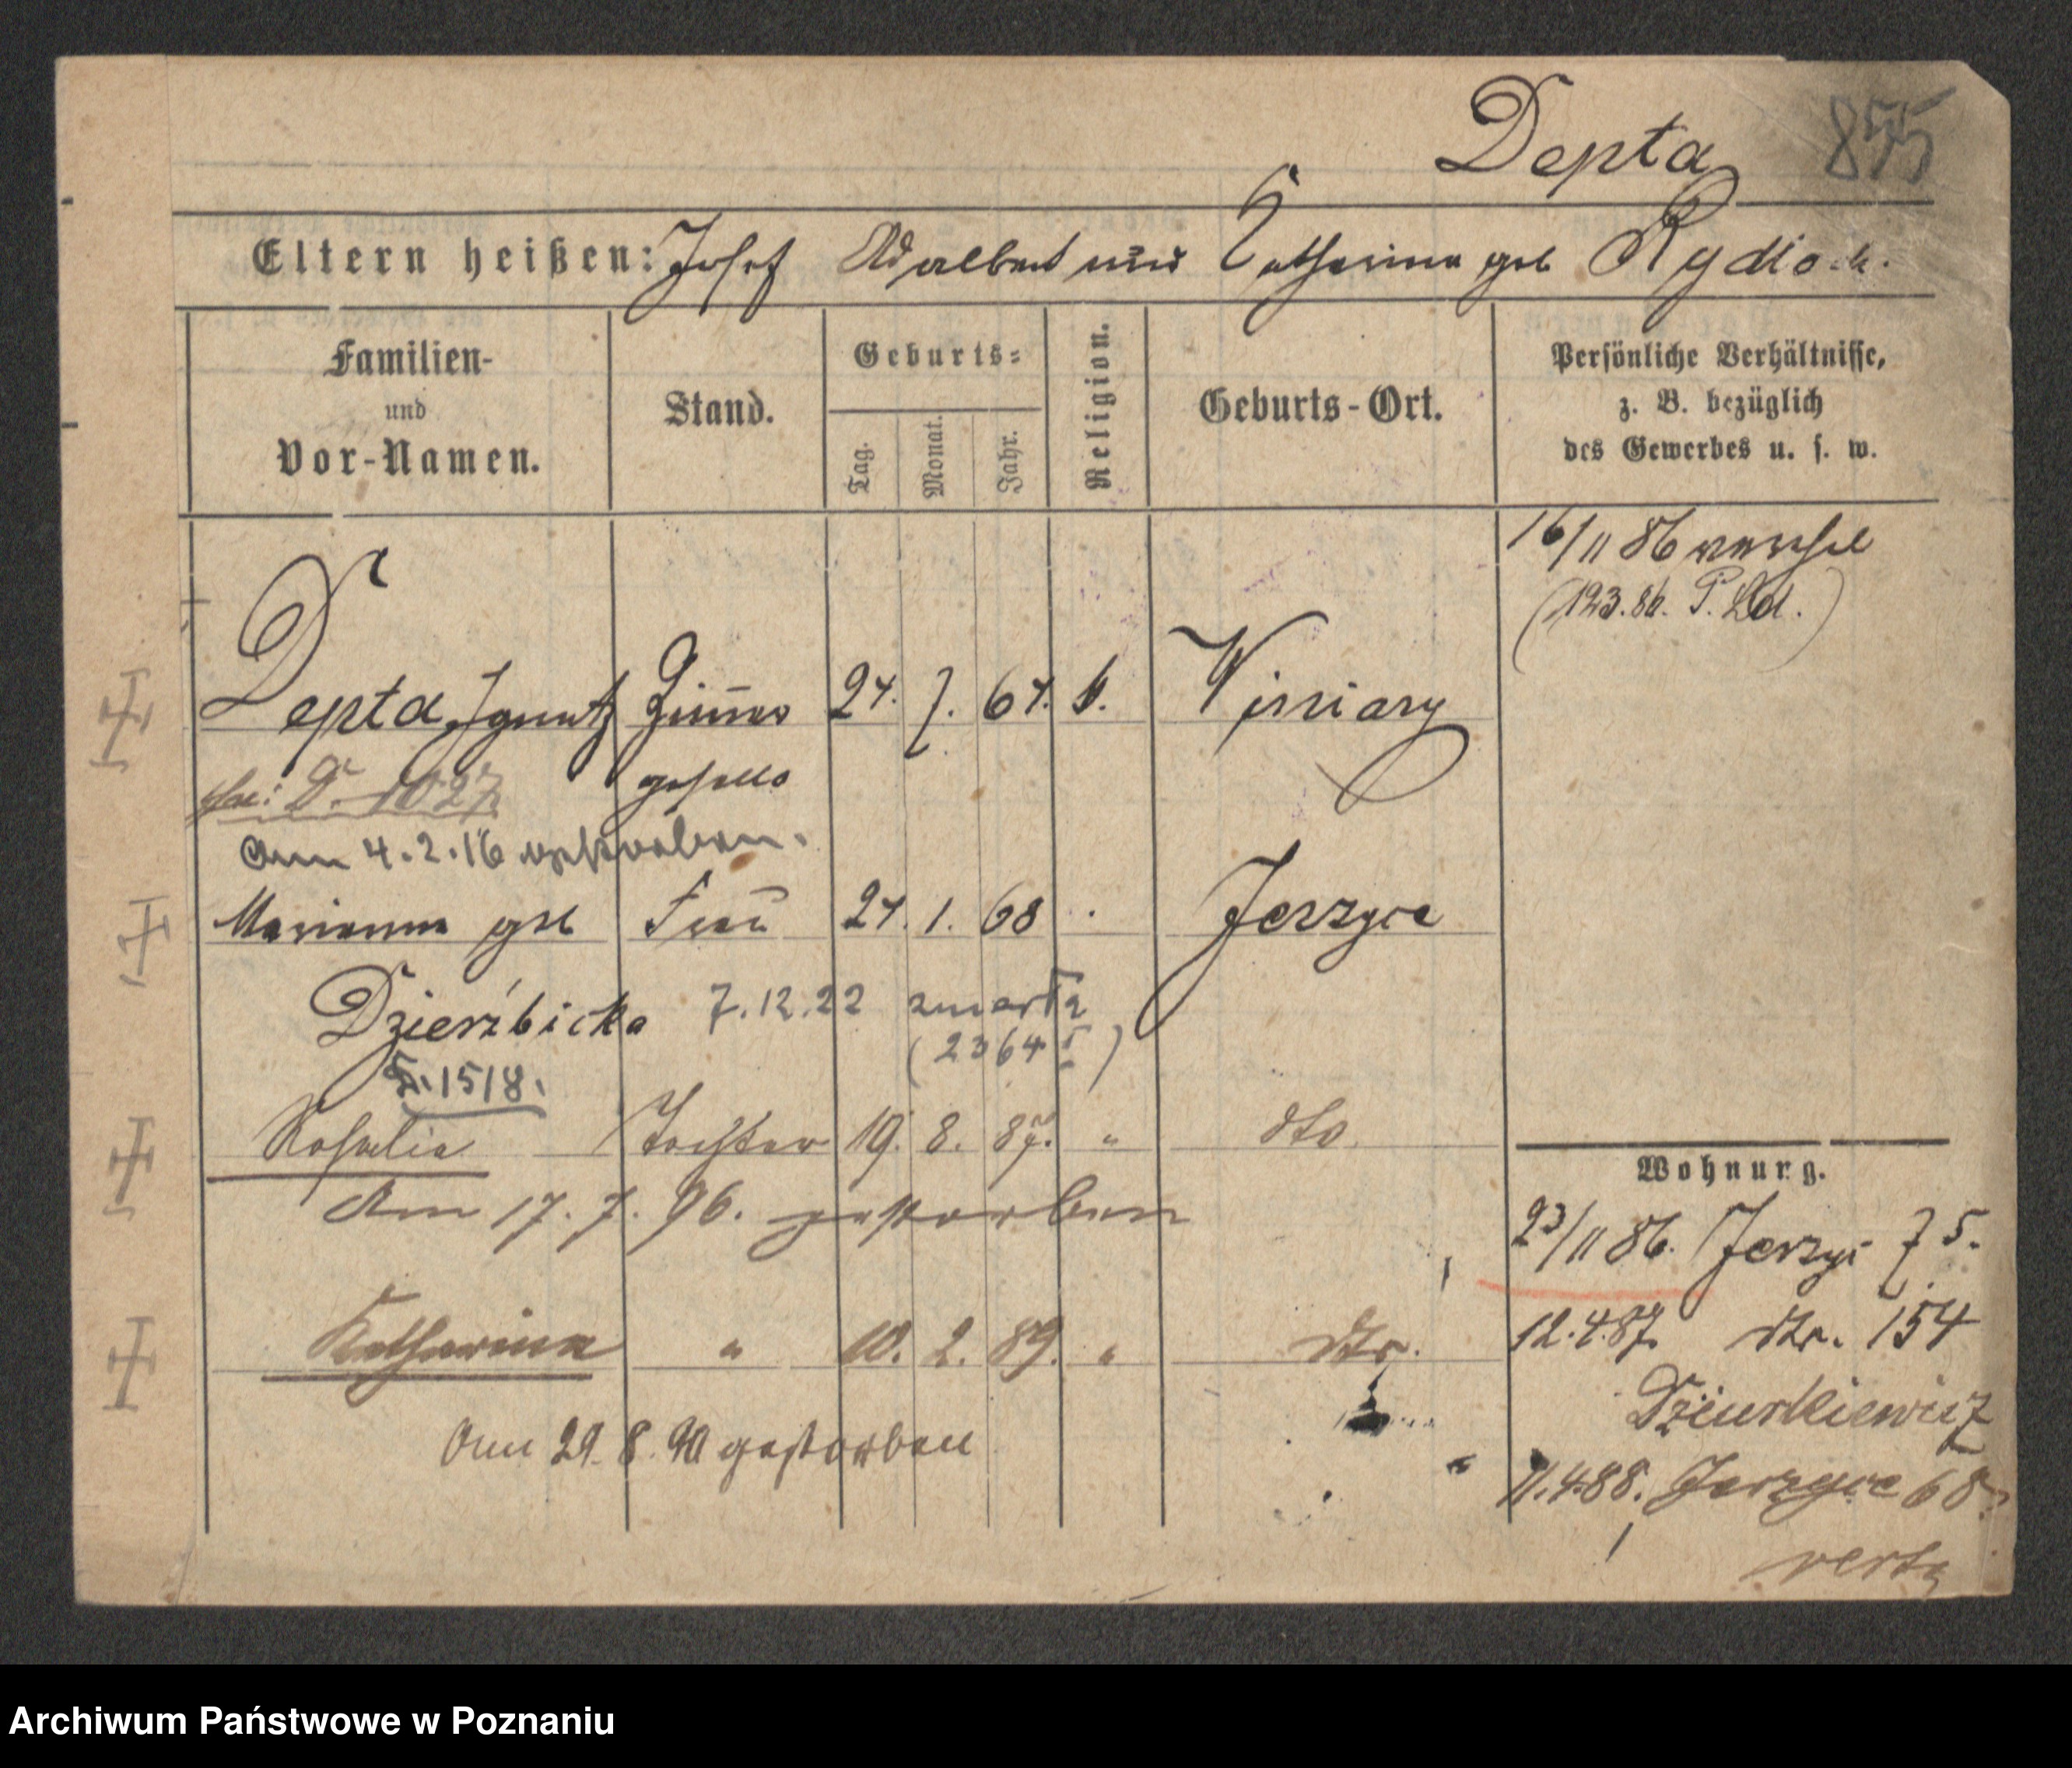 Depta 855
Eltern heißen: Josef Adalbert und Catharina geb Rydlo
Familien-
und
Vor-Namen.
Stand.
Geburts-
Tag.
Monat.
Jahr.
Religion.
Geburts-Ort.
Persönliche Verhältnisse,
z. B. bezüglich
des Gewerbes u. s. w.
16/11 86
(123.86. P. )
Depta Ignatz Zimmer 24. 7. 64. k. Winiary
geselle
D. 1027
Am 4.2.16 verstorben.
Marianna geb Frau 24. 1. 68 Jerzyce
Dzierźbicka 7.12.22 zmarła
(2364 )
D. 1518.
Rosalie Tochter 19. 8. 87. " dto
Am 17. 7. 96. gestorben
Wohnung.
23/11 86. Jerzyc 75.
Katharina " 10. 2. 89. " dto.
12.4.87. dto. 154
Dziurkiewicz
Am 29. 8. 90 gestorben
11.4.88. Jerzyce 68
verte
Archiwum Państwowe w Poznaniu